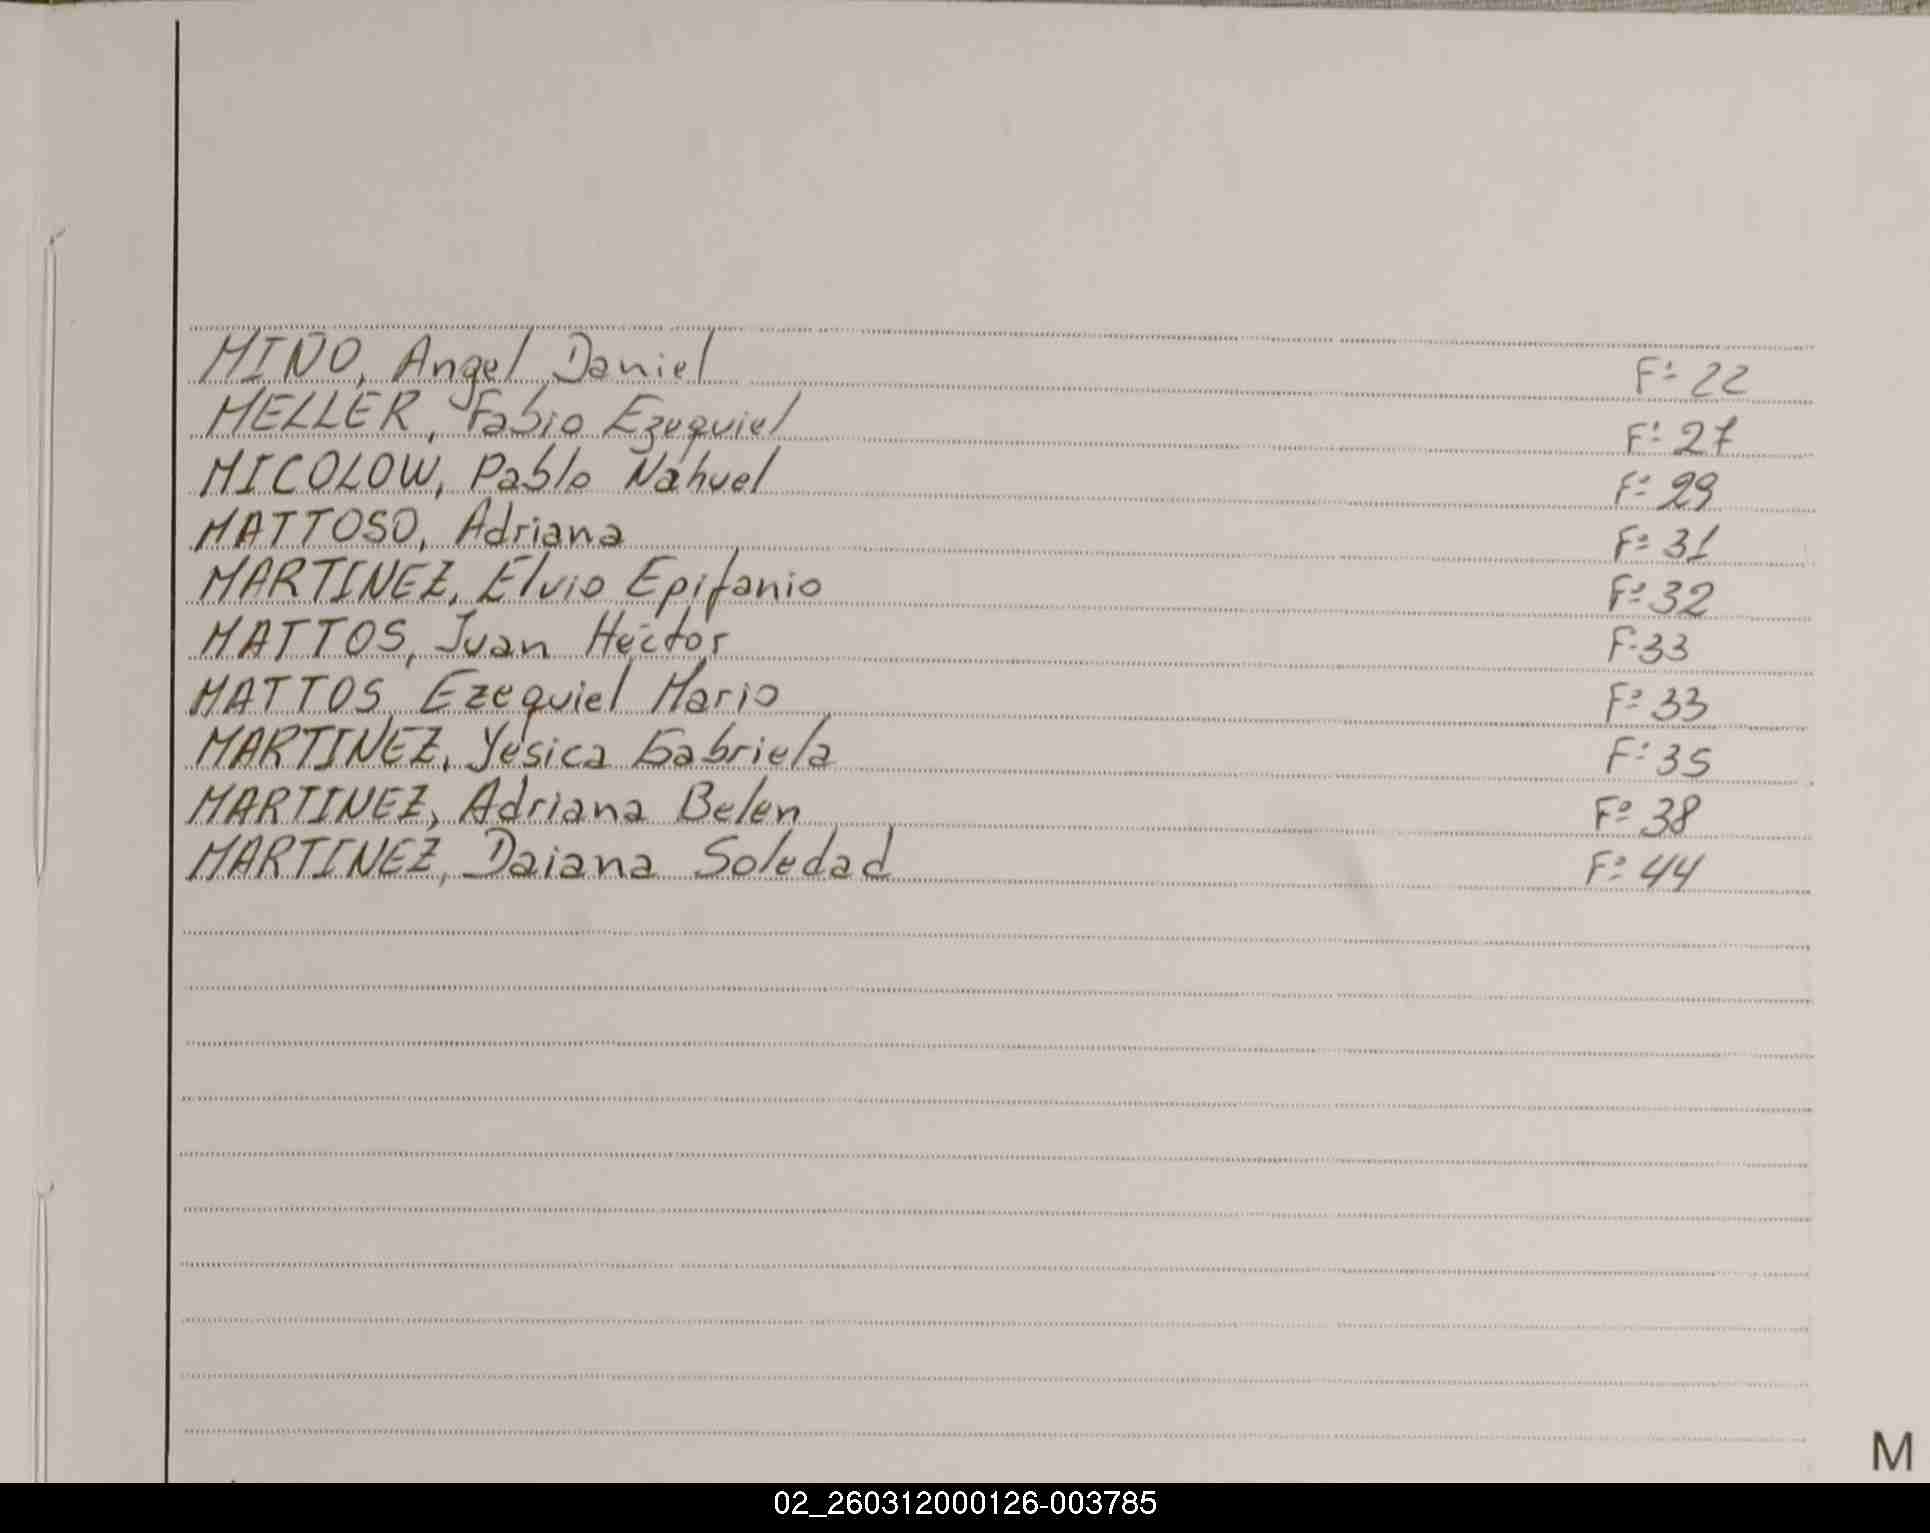 MIÑO, Angel Daniel F: 22
MELLER, Fabio Ezequiel F: 27
MICOLOW, Pablo Nahuel F: 29
MATTOSO, Adriana Fº 31
MARTINEZ, Elvio Epifanio Fº 32
MATTOS, Juan Héctor F: 33
MATTOS Ezequiel Mario Fº 33
MARTINEZ, Yésica Gabriela F: 35
MARTINEZ, Adriana Belen Fº 38
MARTINEZ, Daiana Soledad Fº 44
M
02_260312000126-003785